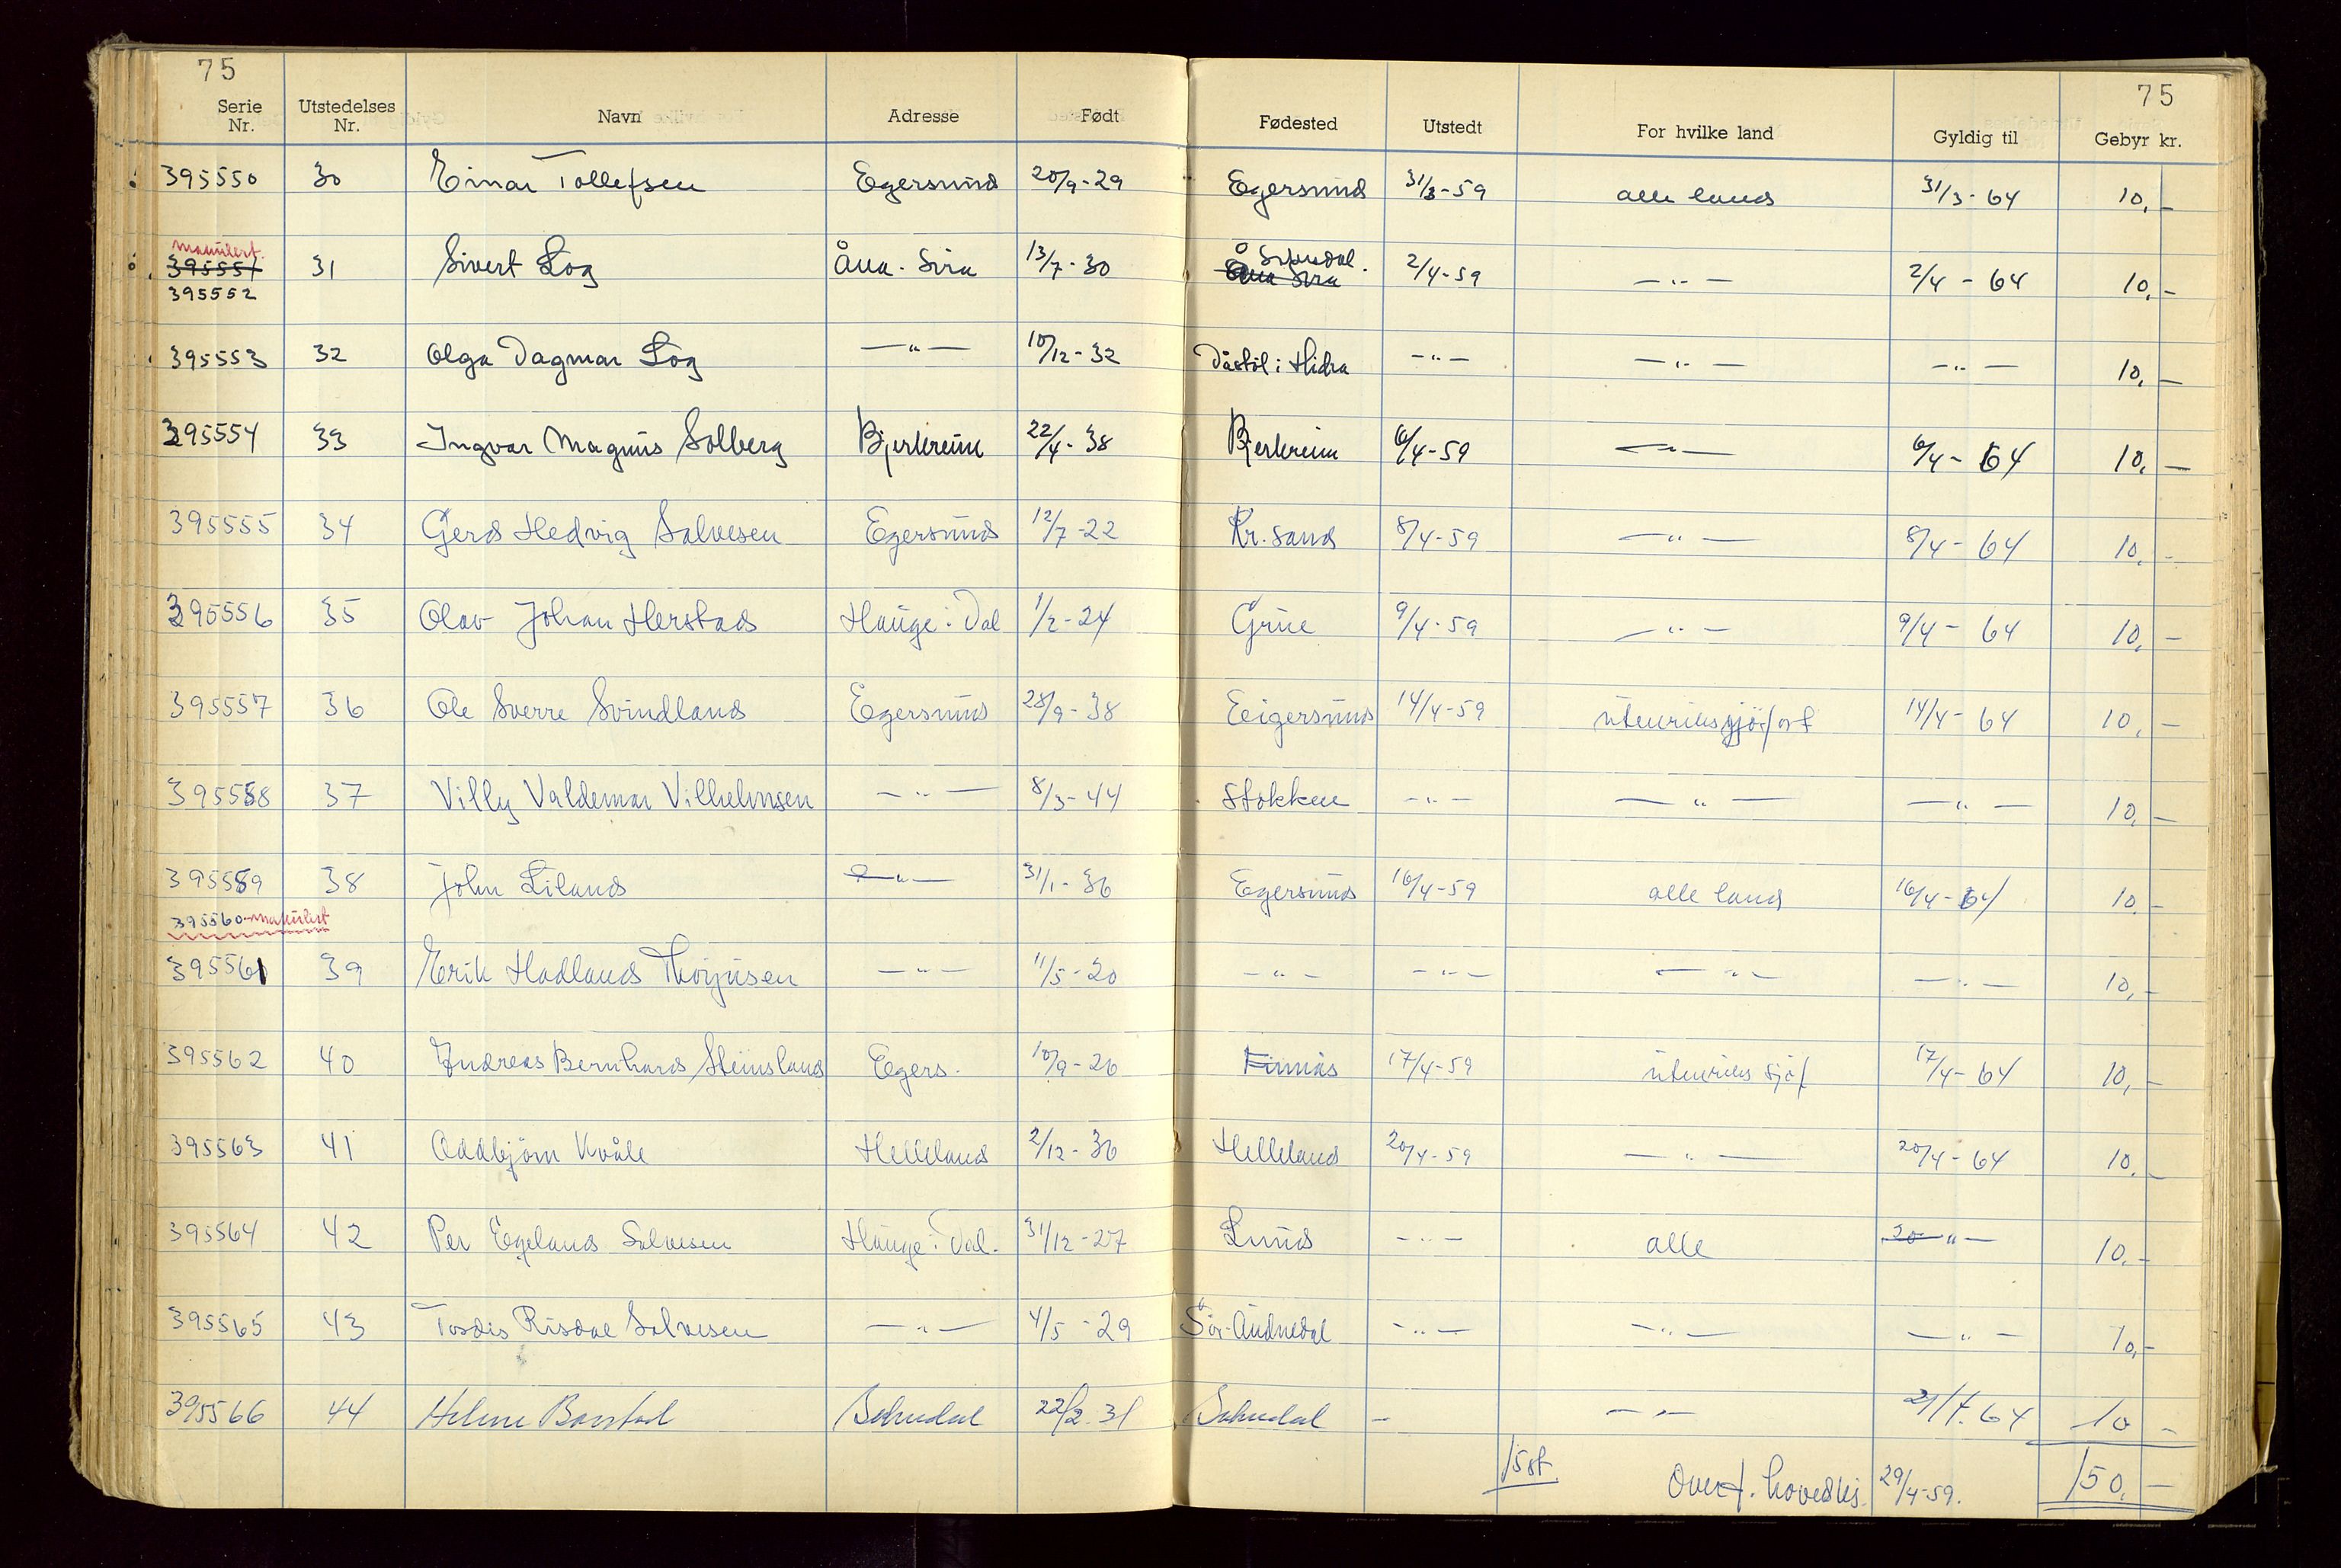 75 75
Serie Nr. Utstedelses Nr. Navn Adresse Født Fødested Utstedt For hvilke land Gyldig til Gebyr kr.
395550 30 Einar Tollefsen Egersund 20/9-29 Egersund 31/3-59 alle land 31/3-64 10,-
makulert
395551 31 Sivert Log Åna-Sira 13/7-30 Åna Sira 2/4-59 —"— 2/4-64 10,-
395552
395553 32 Olga Dagmar Log —"— 10/12-32 Dåstöl i Hidra —"— —"— —"— 10,-
395554 33 Ingvar Magnus Solberg Bjerkreim 22/4-38 Bjerkreim 6/4-59 —"— 6/4-64 10,-
395555 34 Gerd Hedvig Salvesen Egersund 12/7-22 Kr.sand 8/4-59 —"— 8/4-64 10,-
395556 35 Olav Johan Herstad Hauge i Dal 1/2-24 Grue 9/4-59 —"— 9/4-64 10,-
395557 36 Ole Sverre Svindland Egersund 28/9-38 Eigersund 14/4-59 utenriks sjöfart 14/4-64 10,-
395558 37 Villy Valdemar Vilhelmsen —"— 8/3-44 Stokken —"— —"— —"— 10,-
395559 38 John Liland —"— 31/1-36 Egersund 16/4-59 alle land 16/4-64 10,-
395560 - makulert
395561 39 Erik Hadland Thorjusen —"— 11/5-20 —"— —"— —"— —"— 10,-
395562 40 Andreas Bernhard Steinsland Egers. 10/9-26 Finnås 17/4-59 utenriks sjöf 17/4-64 10,-
395563 41 Oddbjörn Kvåle Helleland 2/12-36 Helleland 20/4-59 —"— 20/4-64 10,-
395564 42 Per Egeland Salvesen Hauge i Dal. 31/12-27 Lund —"— alle 20 —"— 10,-
395565 43 Tordis Risdal Salvesen —"— 4/5-29 Sör-Audnedal —"— —"— —"— 10,-
395566 44 Helene Barstad Sokndal 22/2-31 Sokndal - —"— 64 10 -
15 st Overf. hovedkj. 29/4-59. 150,-